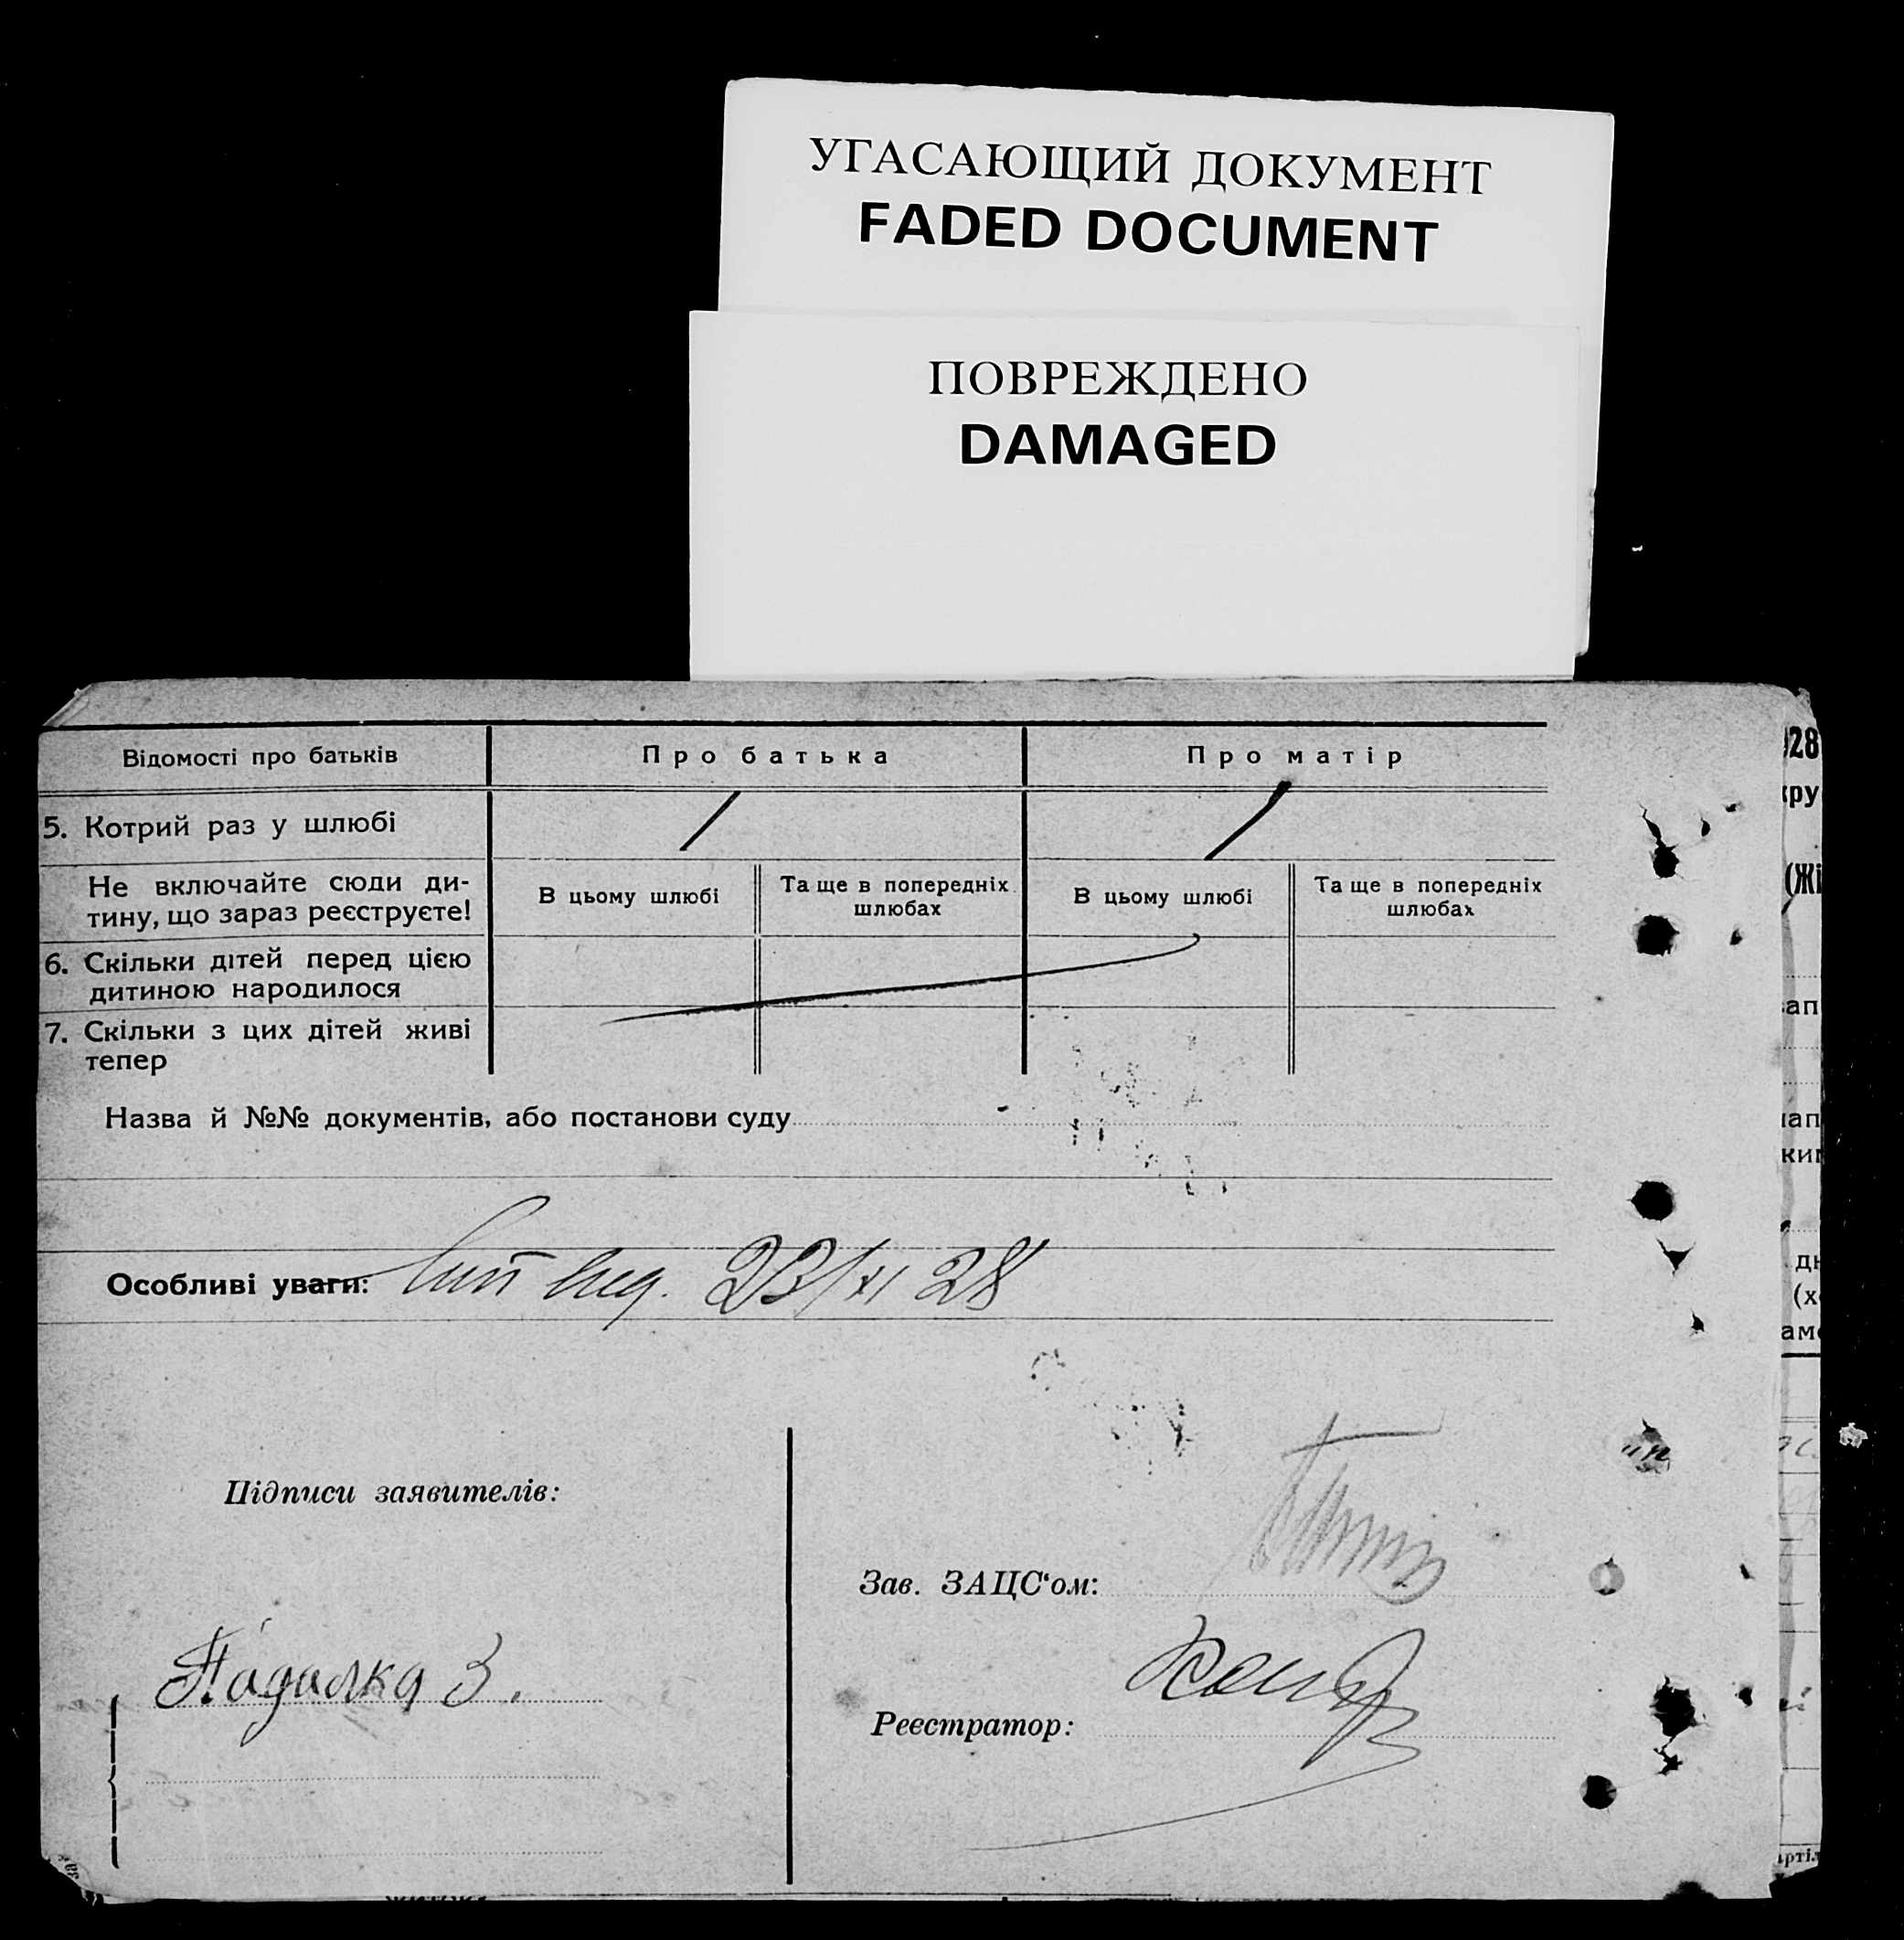 УГАСАЮЩИЙ ДОКУМЕНТ
FADED DOCUMENT
ПОВРЕЖДЕНО
DAMAGED
Відомості про батьків
Про батька
Про матір
5. Котрий раз у шлюбі
1
1
Не включайте сюди ди-
тину, що зараз реєструєте!
В цьому шлюбі
Та ще в попередніх
шлюбах
В цьому шлюбі
Та ще в попередніх
шлюбах
6. Скільки дітей перед цією
дитиною народилося
7. Скільки з цих дітей живі
тепер
Назва й №№ документів, або постанови суду
Особливі уваги: 23/XI 28
Підписи заявителів:
Зав. ЗАЦС‘ом:
Падалка З.
Реєстратор: